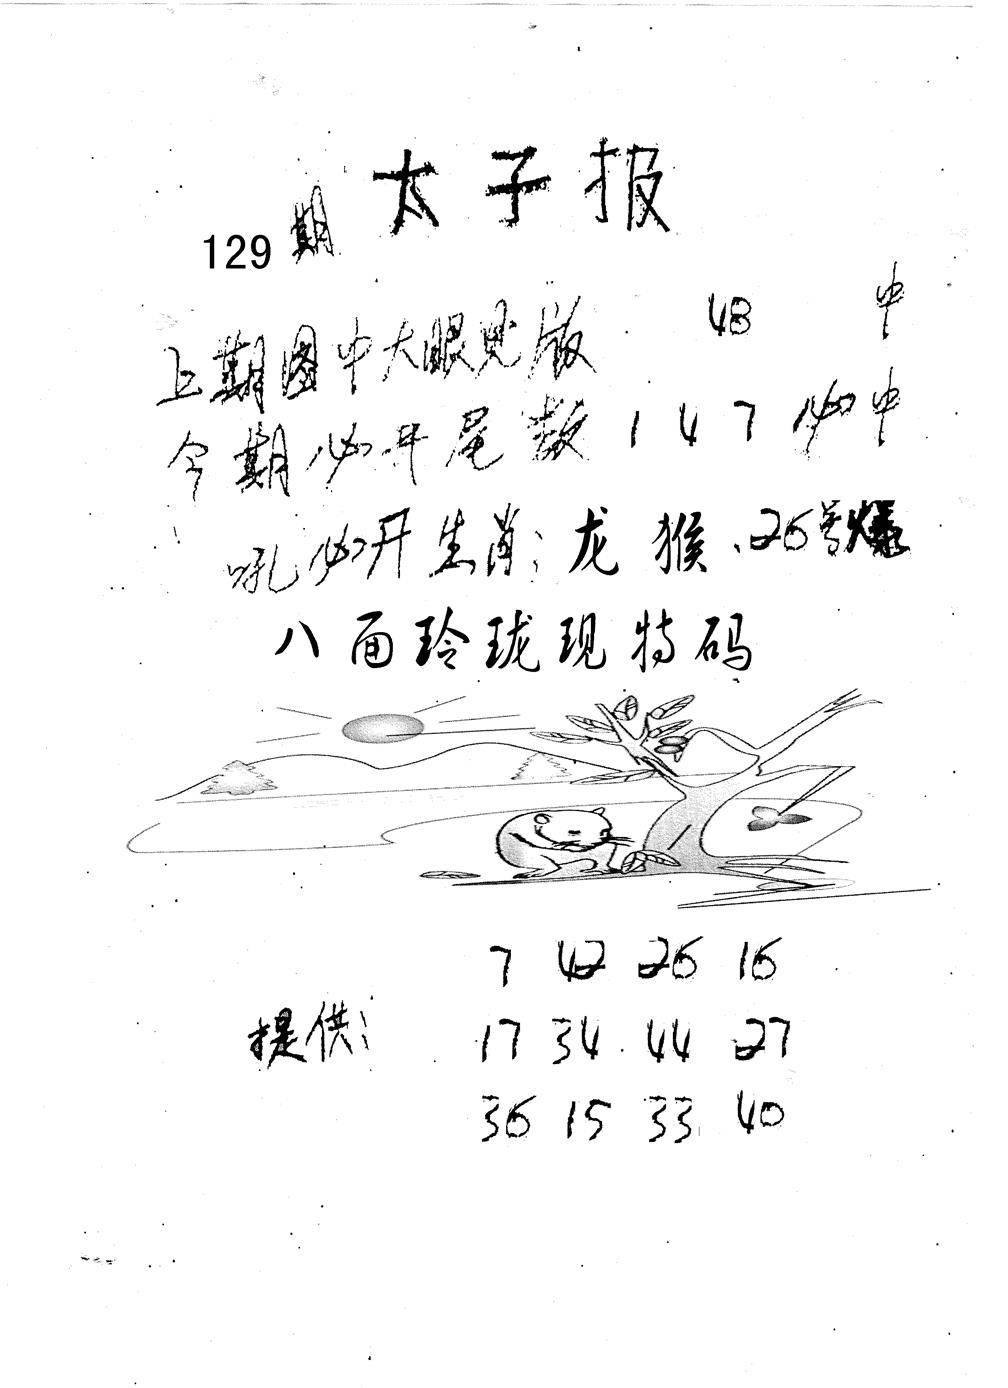 太子报
129期
上期图中大眼见版 48 中
今期必开尾数 1 4 7 必中
吼必开生肖：龙 猴、26号爆
八面玲珑现特码
7 42 26 16
提供： 17 34 44 27
36 15 33 40